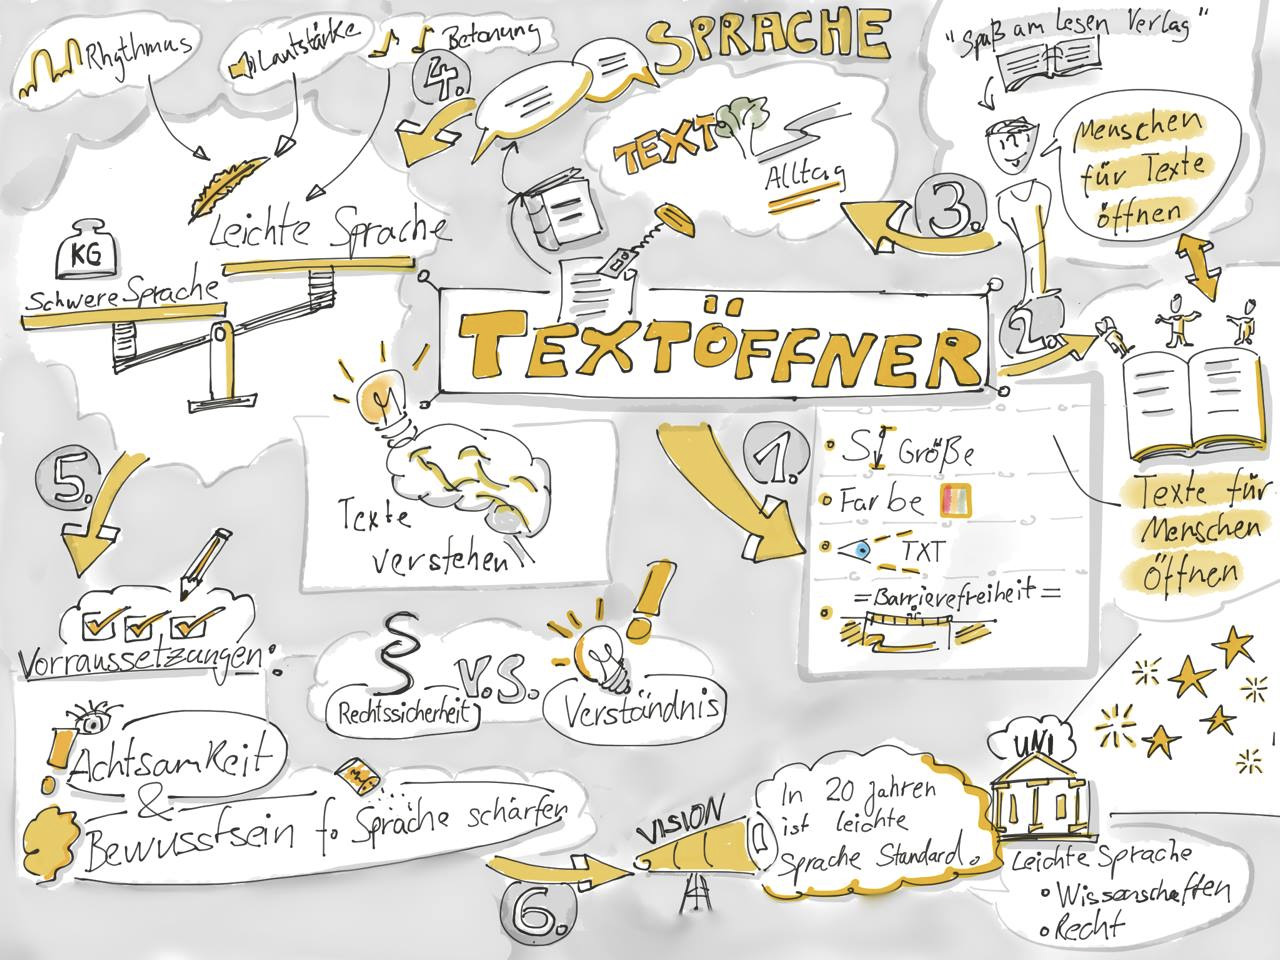 Rhythmus
Lautstärke
Betonung
4.
SPRACHE
"Spaß am Lesen Verlag"
TEXT
Alltag
3.
Menschen
für Texte
öffnen
KG
Leichte Sprache
Schwere Sprache
TEXTÖFFNER
2.
5.
Texte
verstehen
1.
S Größe
Farbe
TXT
=Barrierefreiheit=
Texte für
Menschen
Öffnen
Vorraussetzungen:
§
Rechtssicherheit
V.S.
!
Verständnis
!
Achtsamkeit
&
Bewusstsein f. Sprache schärfen
6.
VISION
In 20 Jahren
ist leichte
Sprache Standard.
UNI
Leichte Sprache
• Wissenschaften
• Recht